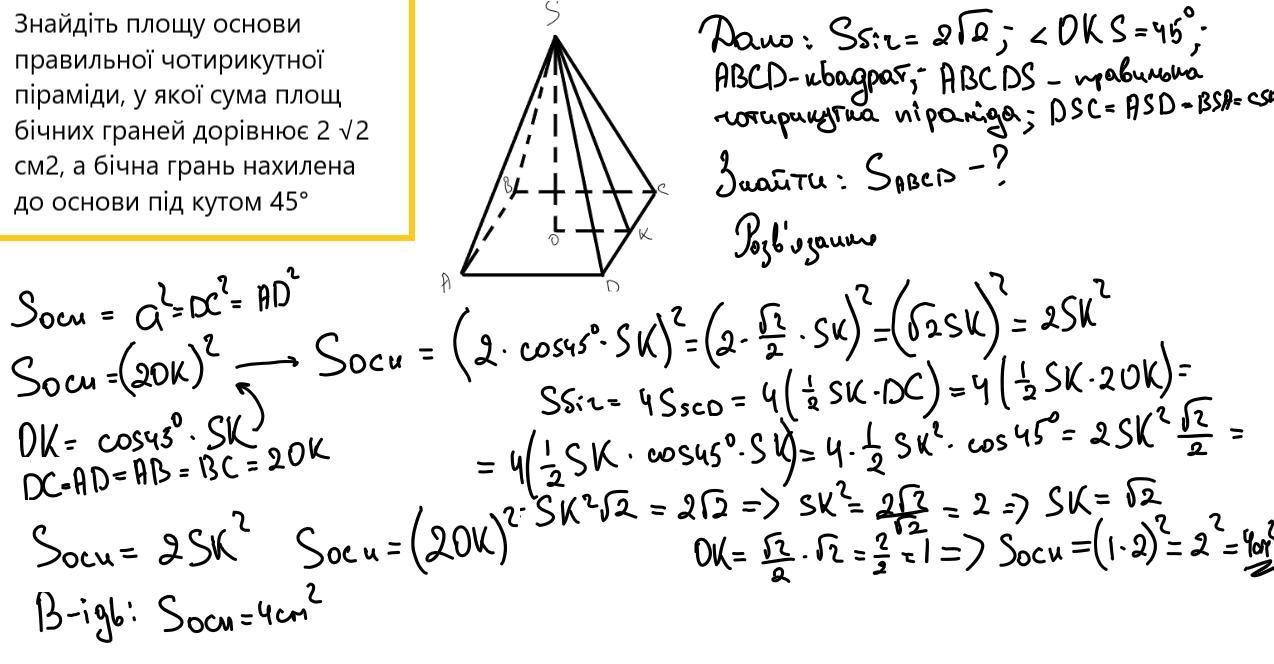 Знайдіть площу основи
правильної чотирикутної
піраміди, у якої сума площ
бічних граней дорівнює 2 √2
см2, а бічна грань нахилена
до основи під кутом 45°
S
B
C
O
K
A
D
Дано: Sбіч = 2√2; <OKS = 45°;
ABCD-квадрат; ABCDS - правильна
чотирикутна піраміда; DSC = ASD = BSA = CSB
Знайти: SABCD - ?
Розв'язання
Sосн = a² = DC² = AD²
Sосн = (2OK)² → Sосн = (2 · cos45° · SK)² = (2 · √2/2 · SK)² = (√2SK)² = 2SK²
OK = cos45° · SK
DC=AD=AB=BC=2OK
Sбіч = 4SSCD = 4(1/2 SK · DC) = 4(1/2 SK · 2OK) =
= 4(1/2 SK · cos45° · SK) = 4 · 1/2 SK² · cos45° = 2SK² √2/2 =
= SK²√2 = 2√2 => SK² = 2√2/√2 = 2 => SK = √2
Sосн = 2SK² Sосн = (2OK)²
OK = √2/2 · √2 = 2/2 = 1 => Sосн = (1·2)² = 2² = 4см²
В-ідь: Sосн = 4см²